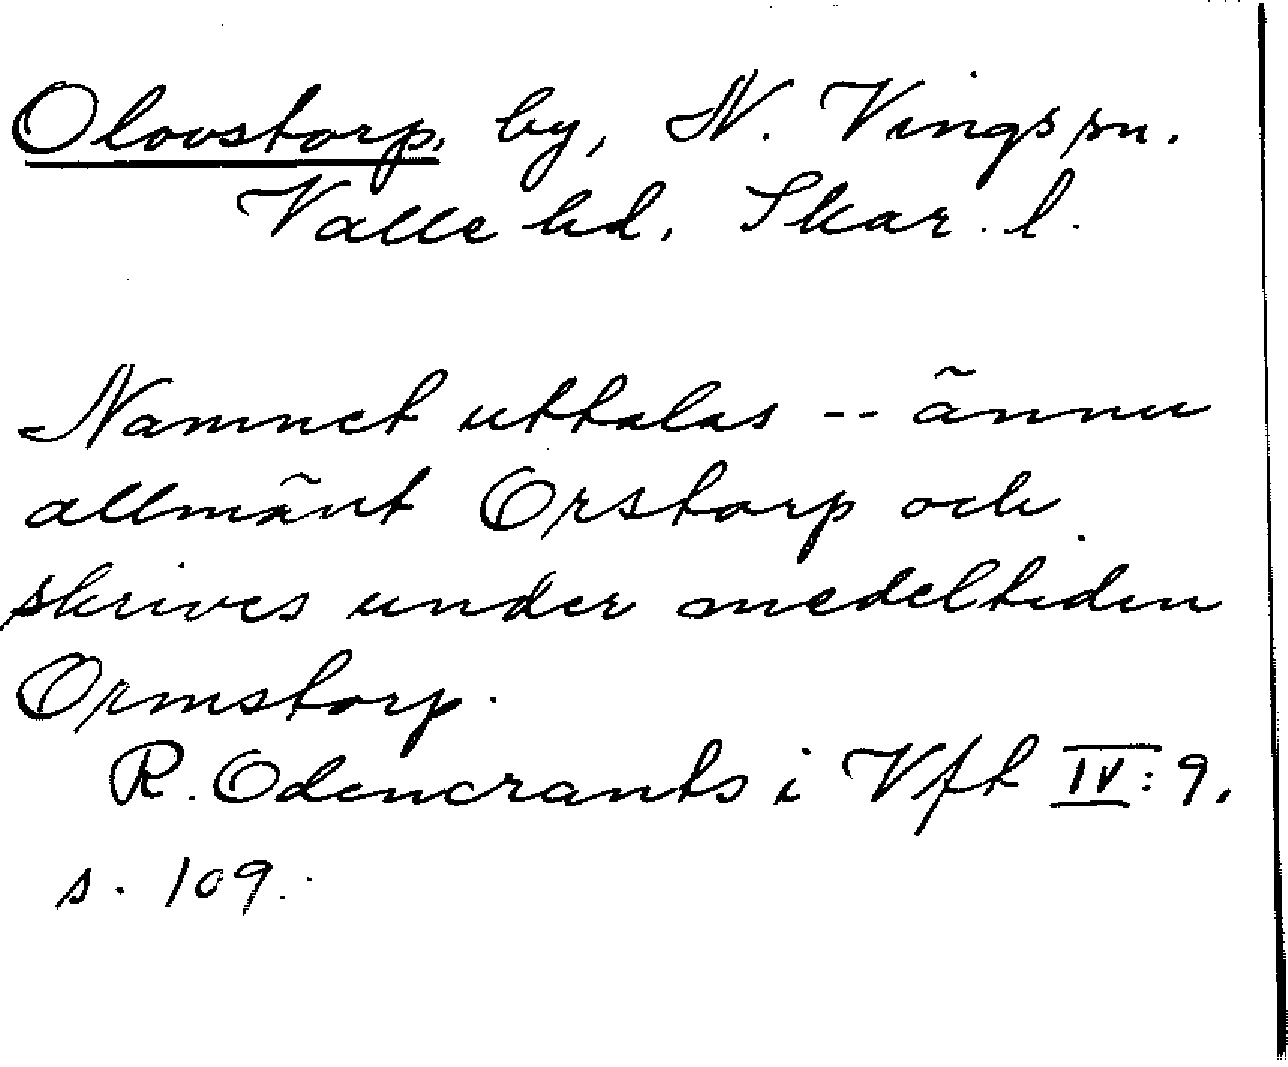 Olovstorp, by, N. Vings sn.
Valle hd, Skar. l.
Namnet uttalas -- ännu
allmänt Orstorp och
skrives under medeltiden
Ormstorp.
R. Odencrants i Vft IV: 9,
s. 109.